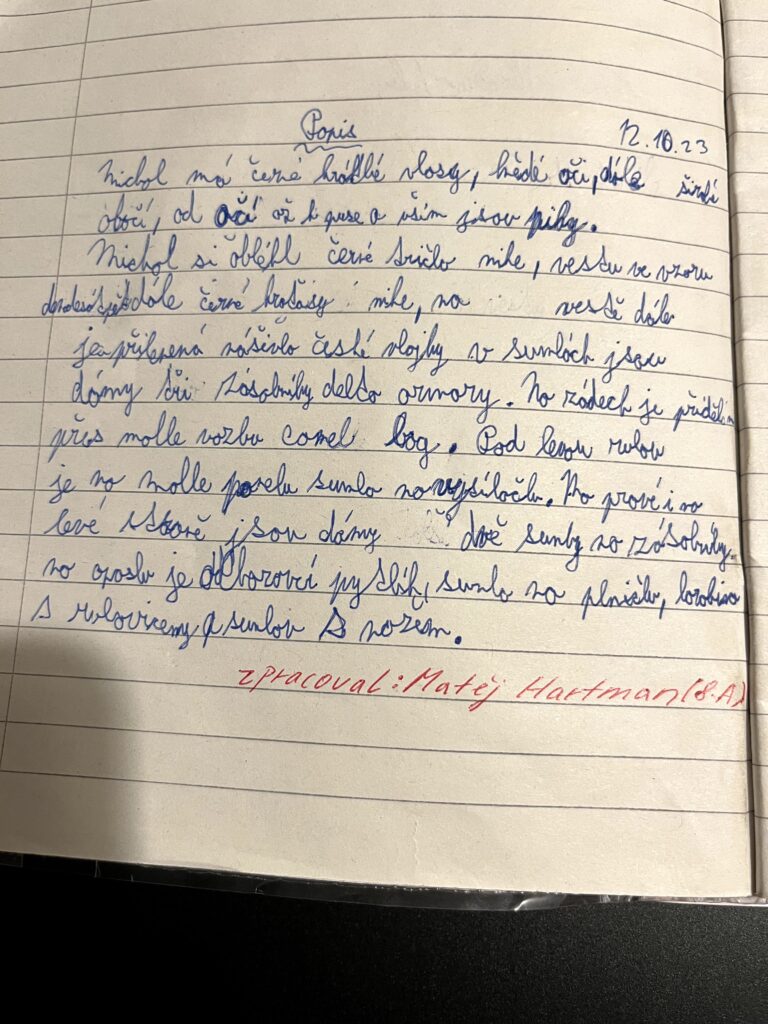 Popis 12.10.23
Michal má černé krátké vlasy, hnědé oči, dále širší
obočí, od očí až k puse a uším jsou pihy.
Michal si oblékl černé tričko nike, vestu ve vzoru
dále černé kraťasy nike, na vestě dále
je přilepená nášivka české vlajky v sumkách jsou
dámy tři zásobníky delta armory. Na zádech je přidělan
přes molle vazbu camel bag. Pod levou rukou
je na molle panelu sumka na vysílačku. Na pravé i na
levé straně jsou dámy dvě sumky na zásobníky.
na opasku je odhazovací pytlík, sumka na plničku, karabina
s rukavicemy a sumkou s nožem.
zpracoval: Matěj Hartman (8.A)